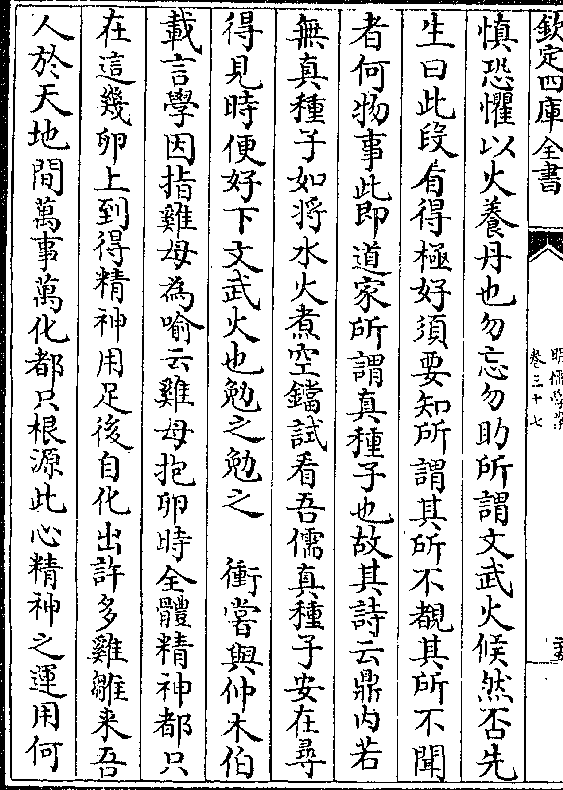 欽定四庫全書
明儒學案
卷三十七
慎恐懼以火養丹也勿忘勿助所謂文武火候然否先
生曰此段看得極好須要知所謂其所不覩其所不聞
者何物事此即道家所謂真種子也故其詩云鼎内若
無真種子如將水火煮空鐺試看吾儒真種子安在尋
得見時便好下文武火也勉之勉之　衝嘗與仲木伯
載言學因指雞母為喻云雞母抱卵時全體精神都只
在這幾卵上到得精神用足後自化出許多雞雛来吾
人於天地間萬事萬化都只根源此心精神之運用何